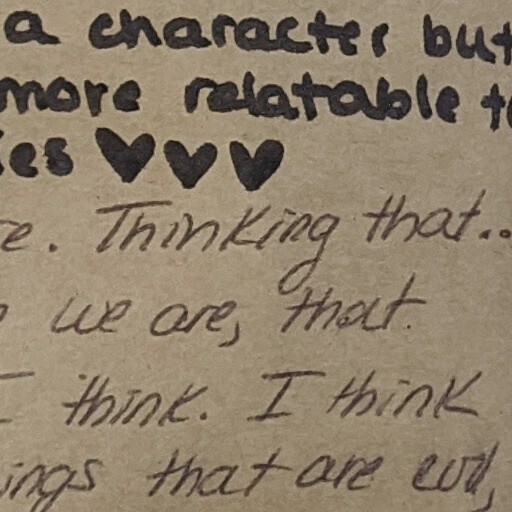 a character but
more relatable to
ies ♥♥♥
e. Thinking that..
we are, that.
I think. I think
ings that are